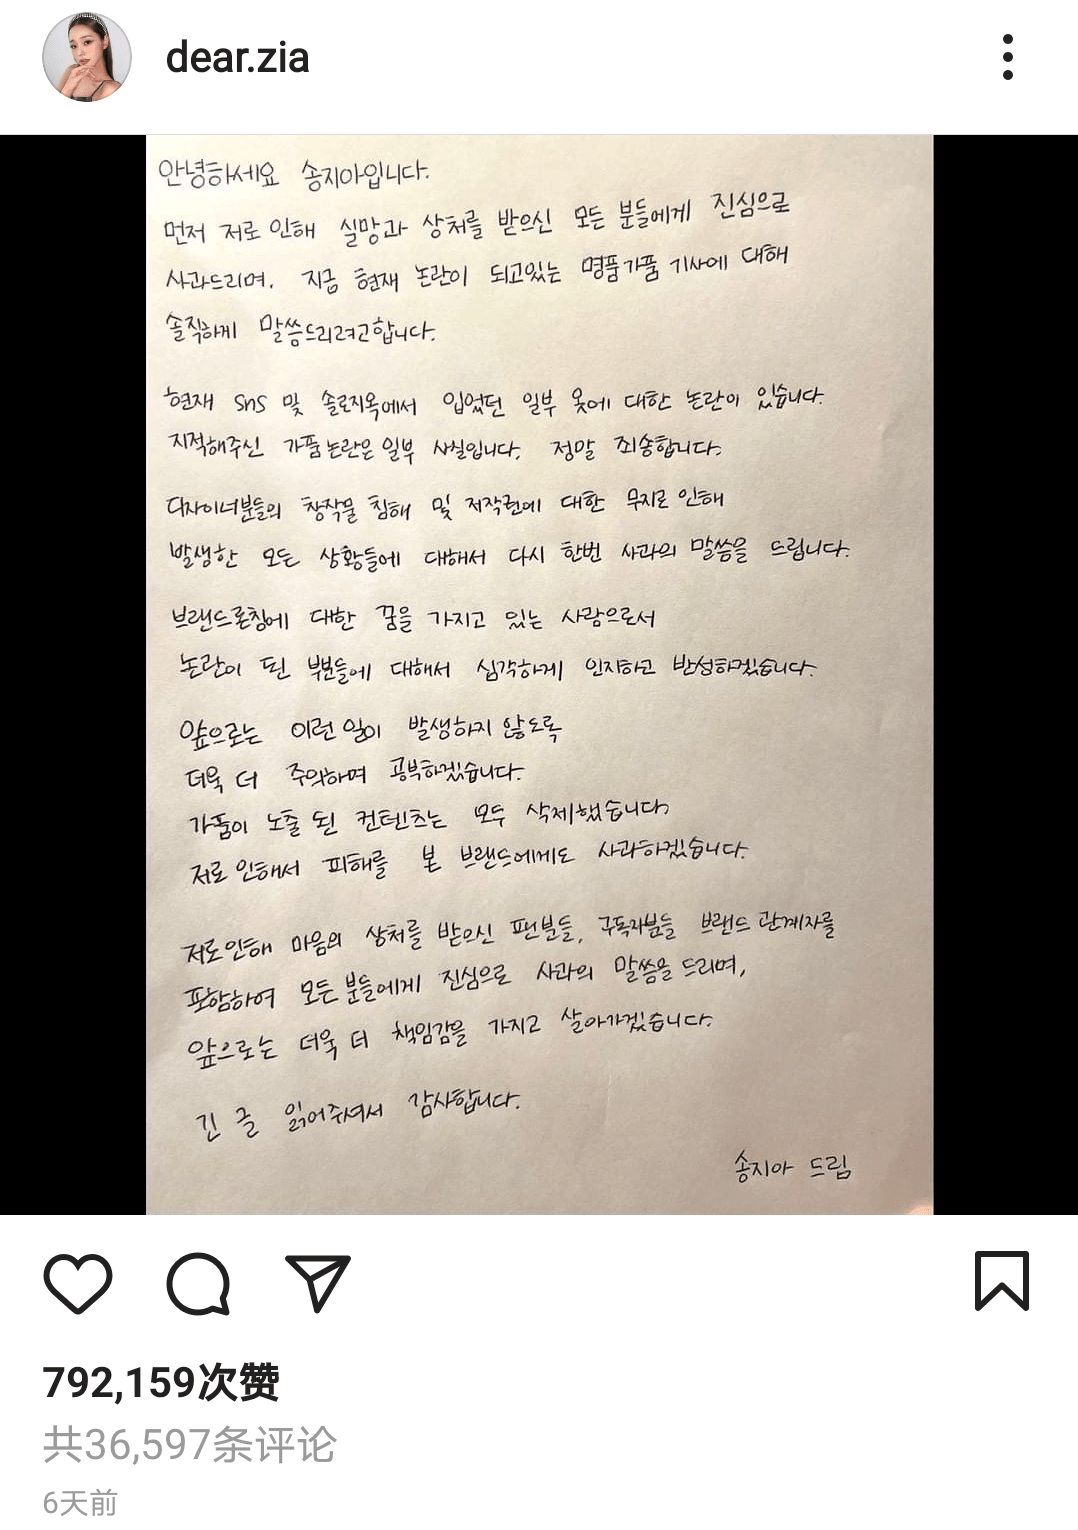 dear.zia
안녕하세요 송지아입니다.
먼저 저로 인해 실망과 상처를 받으신 모든 분들에게 진심으로
사과드리며, 지금 현재 논란이 되고있는 명품가품 기사에 대해
솔직하게 말씀드리려고합니다.
현재 sns 및 솔로지옥에서 입었던 일부 옷에 대한 논란이 있습니다.
지적해주신 가품논란은 일부 사실입니다. 정말 죄송합니다.
디자이너분들의 창작물 침해 및 저작권에 대한 무지로 인해
발생한 모든 상황들에 대해서 다시 한번 사과의 말씀을 드립니다.
브랜드론칭에 대한 꿈을 가지고 있는 사람으로서
논란이 된 부분들에 대해서 심각하게 인지하고 반성하겠습니다.
앞으로는 이런 일이 발생하지 않도록
더욱 더 주의하며 공부하겠습니다.
가품이 노출 된 컨텐츠는 모두 삭제했습니다.
저로 인해서 피해를 본 브랜드에게도 사과하겠습니다.
저로인해 마음의 상처를 받으신 팬분들, 구독자분들 브랜드 관계자를
포함하여 모든 분들에게 진심으로 사과의 말씀을 드리며,
앞으로는 더욱 더 책임감을 가지고 살아가겠습니다.
긴 글 읽어주셔서 감사합니다.
송지아 드림
792,159次赞
共36,597条评论
6天前